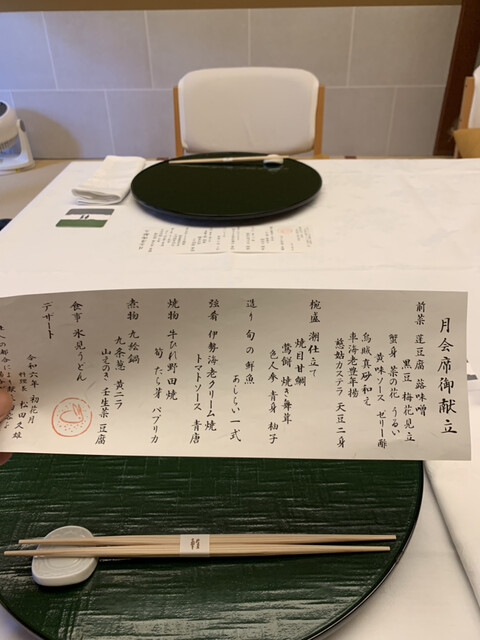 月会席御献立
前菜 蓮豆腐 蕗味噌
黒豆 梅花見立
蟹身 菜の花 うるい
黄味ソース ゼリー酢
烏賊真砂和え
車海老豊年揚
慈姑カステラ 天豆二身
椀盛 潮仕立て
焼目甘鯛
鶯餅 焼き舞茸
色人参 青身 柚子
造り 旬の鮮魚
あしらい一式
強肴 伊勢海老クリーム焼
トマトソース 青唐
焼物 牛ひれ野田焼
筍 たら芽 パプリカ
煮物 九絵鍋
九条葱 黄ニラ
山えのき 壬生菜 豆腐
食事 氷見うどん
デザート
令和六年 初花月
料理長 松田